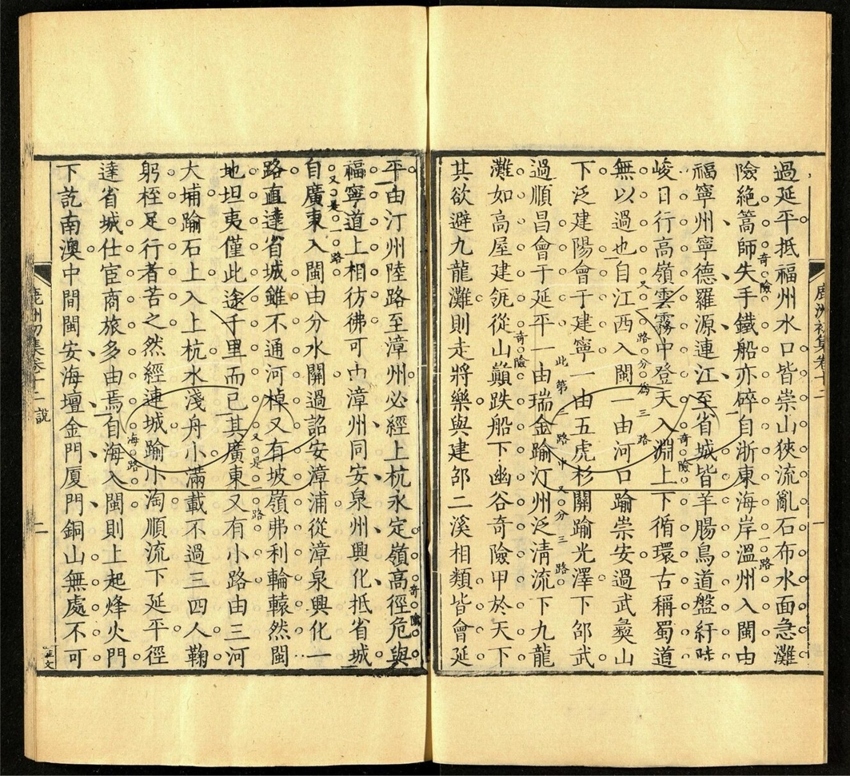 過延平抵福州水口皆崇山狹流亂石布水面急灘
奇險
險絕篙師失手鐵船亦碎自浙東海岸溫州入閩由
一路
福寧州寧德羅源連江至省城皆羊腸鳥道盤紆
奇險
峻日行高嶺雲霧中登天入淵上下循環古稱蜀道
無以過也自江西入閩一由河口踰崇安過武彝山
又一路分為三路
下泛建陽會于建寧一由五虎杉關踰光澤下邵武
過順昌會于延平一由瑞金踰汀州泛清流下九龍
此第三路中又分三路
奇險
灘如高屋建瓴從山巔跌船下幽谷奇險甲於天下
其欲避九龍灘則走將樂與建邵二溪相類皆會延
鹿洲初集卷十二
一
奇險
平由汀州陸路至漳州必經上杭永定嶺高徑危與
福寧道上相彷彿可由漳州同安泉州興化抵省城
又是一路
自廣東入閩由分水關過詔安漳浦從漳泉興化一
路直達省城雖不通河棹又有坡嶺弗利輪轅然閩
又是一路
地坦夷僅此途千里而已其廣東又有小路由三河
大埔踰石上入上杭水淺舟小滿載不過三四人鞠
躬桎足行者苦之然經連城踰小淘順流下延平徑
海路
達省城仕宦商旅多由焉自海入閩則上起烽火門
下訖南澳中間閩安海壇金門厦門銅山無處不可
鹿洲初集卷十二 說
一